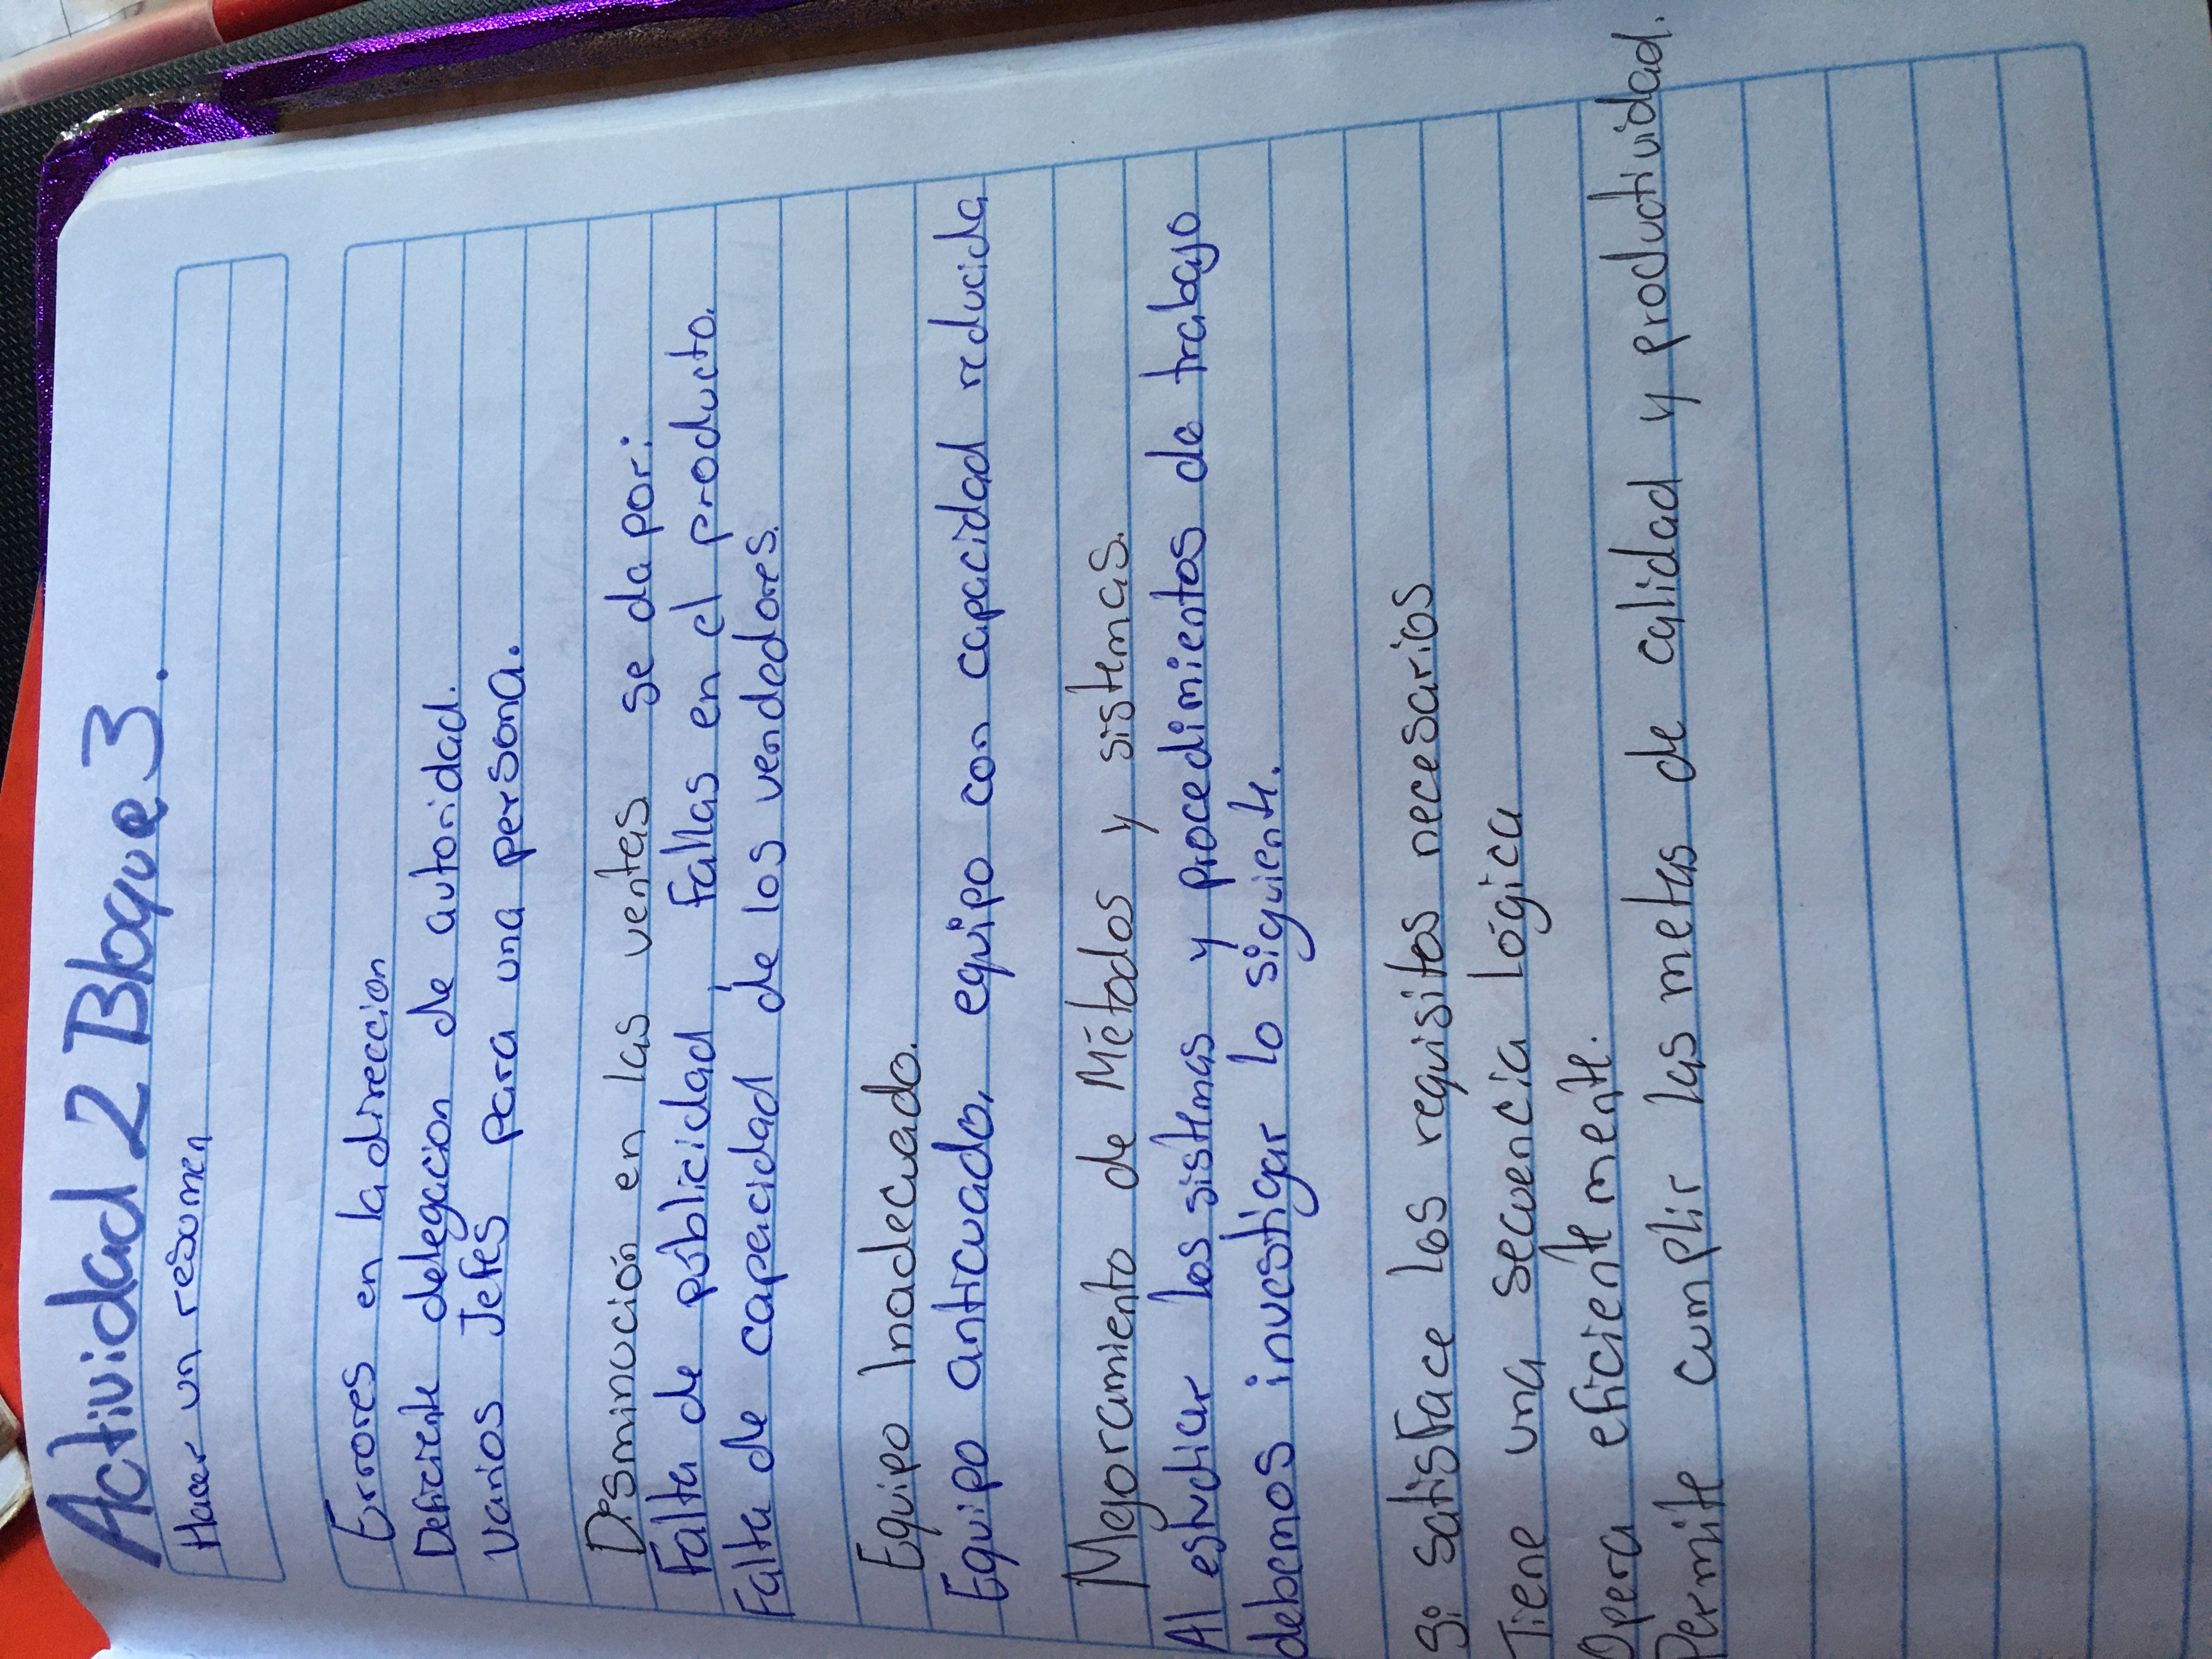 Actividad 2 Bloque 3.
Hacer un resumen
Errores en la direccion
Deficiente delegacion de autoridad.
Varios Jefes para una persona.
Disminución en las ventas se da por:
Falta de públicidad, Fallas en el producto.
Falta de capacidad de los vendedores.
Equipo Inadecuado.
Equipo anticuado, equipo con capacidad reducida
Mejoramiento de Métodos y sistemas.
Al estudiar los sistemas y procedimientos de trabajo
debemos investigar lo siguiente.
Si satisface los requisitos necesarios
Tiene una secuencia lógica
Opera eficientemente.
Permite cumplir las metas de calidad y productividad.